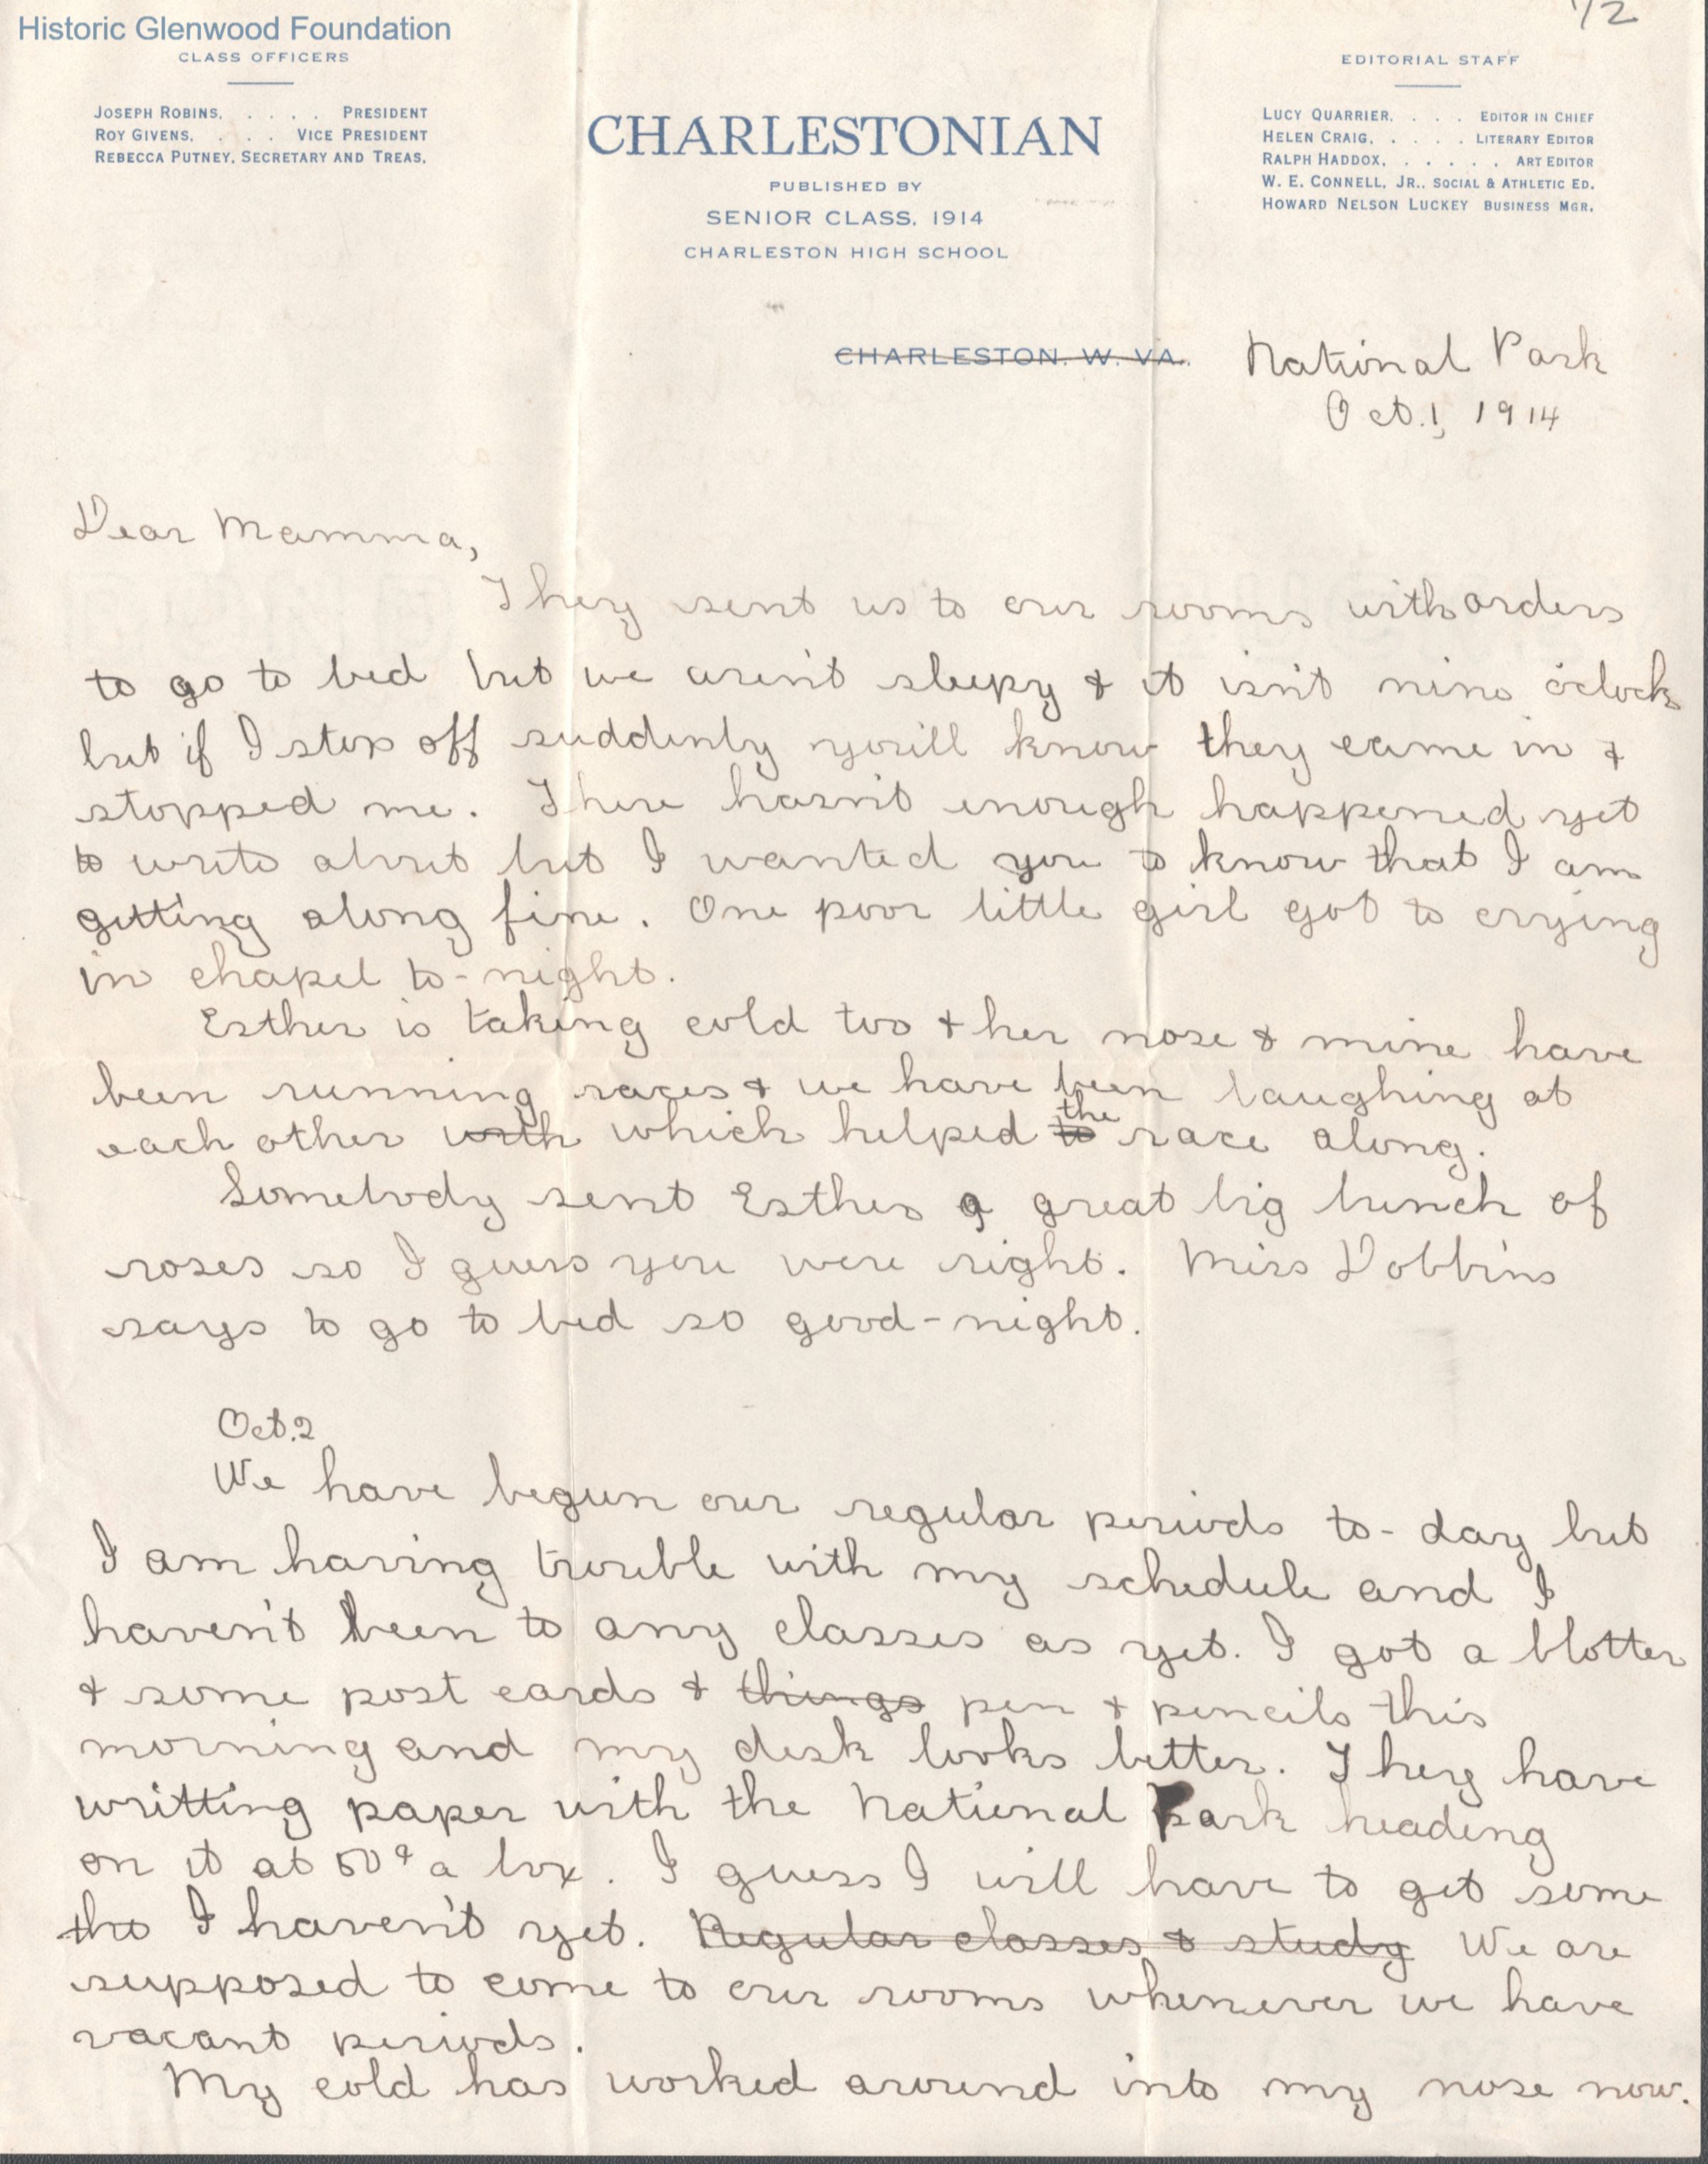 Historic Glenwood Foundation
1/2
CLASS OFFICERS
JOSEPH ROBINS, . . . . PRESIDENT
ROY GIVENS, . . . VICE PRESIDENT
REBECCA PUTNEY, SECRETARY AND TREAS.
CHARLESTONIAN
PUBLISHED BY
SENIOR CLASS, 1914
CHARLESTON HIGH SCHOOL
EDITORIAL STAFF
LUCY QUARRIER, . . . EDITOR IN CHIEF
HELEN CRAIG, . . . . LITERARY EDITOR
RALPH HADDOX, . . . . . ART EDITOR
W. E. CONNELL, JR., SOCIAL & ATHLETIC ED.
HOWARD NELSON LUCKEY BUSINESS MGR.
CHARLESTON, W. VA. National Park
Oct. 1, 1914
Dear Mamma,
They sent us to our rooms with orders
to go to bed but we aren't sleepy & it isn't nine o'clock
but if I stop off suddenly you'll know they came in &
stopped me. There hasn't enough happened yet
to write about but I wanted you to know that I am
getting along fine. One poor little girl got to crying
in chapel to-night.
Esther is taking cold too & her nose & mine have
been running races & we have been laughing at
each other with which helped to the race along.
Somebody sent Esther a great big bunch of
roses so I guess you were right. Miss Dobbins
says to go to bed so good-night.
Oct. 2
We have begun our regular periods to-day but
I am having trouble with my schedule and I
haven't been to any classes as yet. I got a blotter
& some post cards & things pen & pencils this
morning and my desk looks better. They have
writting paper with the National Park heading
on it at 50¢ a box. I guess I will have to get some
tho I haven't yet. Regular classes & study We are
supposed to come to our rooms whenever we have
vacant periods.
My cold has worked around into my nose now.